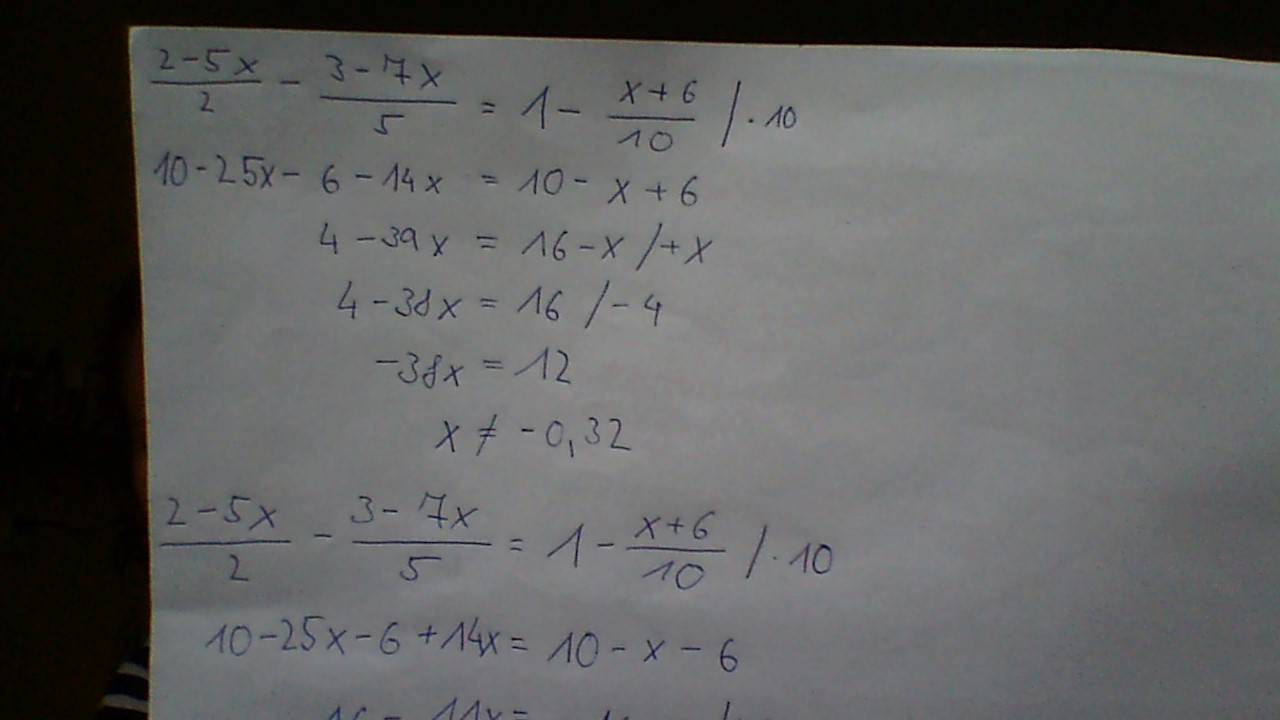 (2-5x)/2 - (3-7x)/5 = 1 - (x+6)/10 /·10
10-25x-6-14x = 10-x+6
4-39x = 16-x /+x
4-38x = 16 /-4
-38x = 12
x ≠ -0,32
(2-5x)/2 - (3-7x)/5 = 1 - (x+6)/10 /·10
10-25x-6+14x = 10-x-6